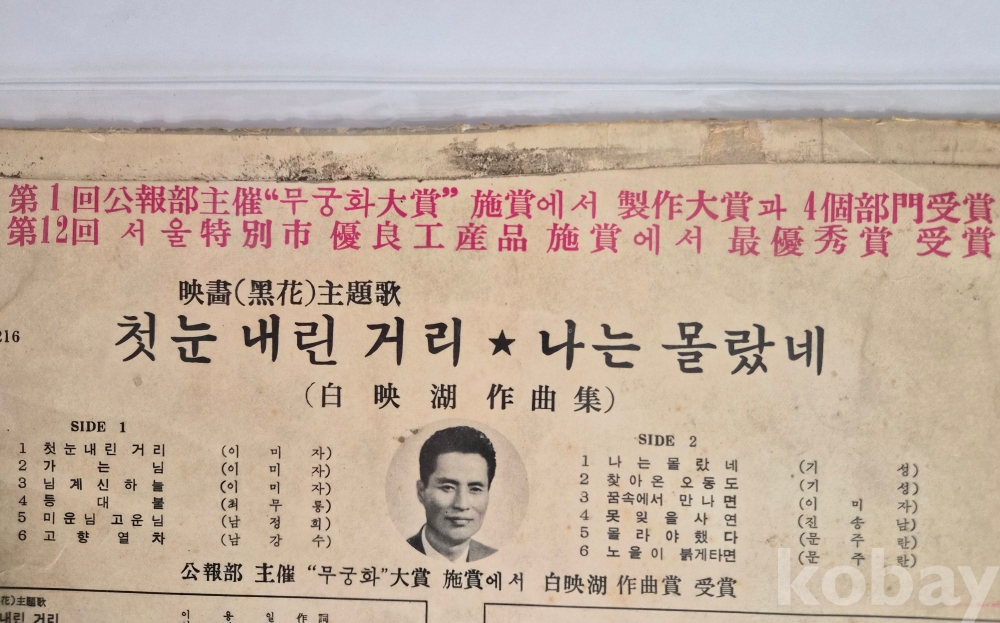 第1回公報部主催“무궁화大賞” 施賞에서 製作大賞과 4個部門受賞
第12回 서울特別市 優良工産品 施賞에서 最優秀賞 受賞
映畵(黑花)主題歌
216
첫눈 내린 거리 ★ 나는 몰랐네
(白映湖作曲集)
SIDE 1
1 첫눈내린 거리 (이미자)
2 가는님 (이미자)
3 님계신하늘 (이미자)
4 등대불 (최무룡)
5 미운님 고운님 (남정희)
6 고향열차 (남강수)
SIDE 2
1 나는몰랐네 (기성)
2 찾아온 오동도 (기성)
3 꿈속에서 만나면 (이미자)
4 못잊을사연 (진송남)
5 몰라야했다 (문주란)
6 노을이 붉게타면 (문주란)
公報部 主催 “무궁화”大賞 施賞에서 白映湖 作曲賞 受賞
花)主題歌
내린 거리
이용일 作詞
kobay